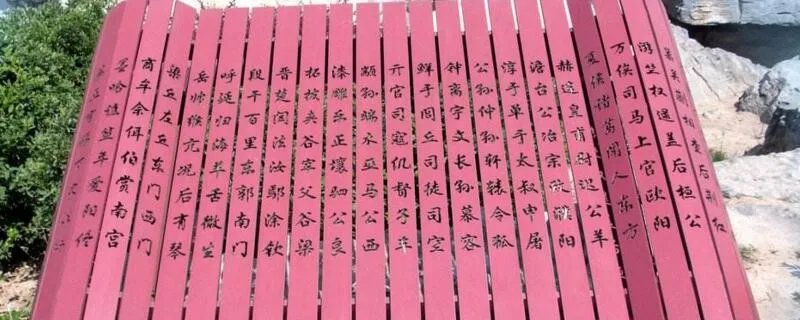 巢关蒯相查后荆红
游竺权逯盖后桓公
万俟司马上官欧阳
夏侯诸葛闻人东方
赫连皇甫尉迟公羊
澹台公冶宗政濮阳
淳于单于太叔申屠
公孙仲孙轩辕令狐
钟离宇文长孙慕容
鲜于闾丘司徒司空
亓官司寇仉督子车
颛孙端木巫马公西
漆雕乐正壤驷公良
拓拔夹谷宰父谷梁
晋楚闫法汝鄢涂钦
段干百里东郭南门
呼延归海羊舌微生
岳帅缑亢况后有琴
梁丘左丘东门西门
商牟余佴伯赏南宫
墨哈谯笪年爱阳佟